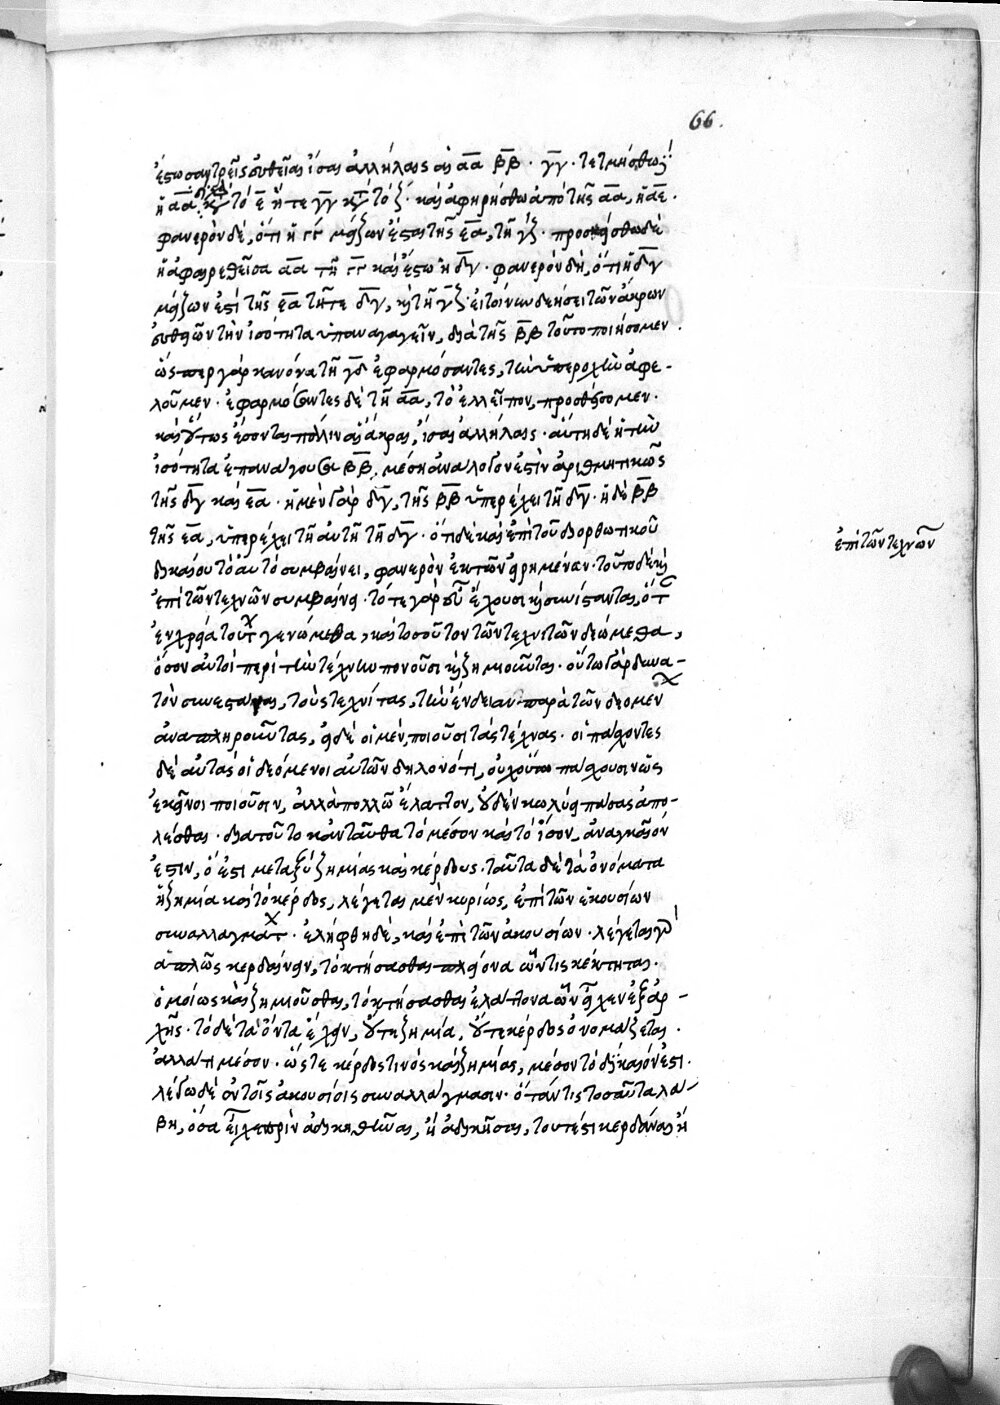 66.
ἔστωσαν τρεῖς εὐθεῖαι ἴσαι ἀλλήλαις αἱ αα ββ · γγ · τετμήσθω
ἡ αα κατὰ τὸ ε ἥ τε γγ κατὰ τὸ ζ · καὶ ἀφῃρήσθω ἀπὸ τῆς αα, ἡ αε ·
φανερὸν δὲ, ὅτι ἡ γγ μείζων ἔσται τῆς εα, τῇ γζ · προσκείσθω δὲ
ἡ ἀφαιρεθεῖσα αα τῇ γγ καὶ ἔστω ἡ δγ · φανερὸν δὴ, ὅτι ἡ δγ
μείζων ἐστὶ τῆς εα τῇ τε δγ, καὶ τῇ γζ · εἰ τοίνυν δεήσει τῶν ἄκρων
εὐθειῶν τὴν ἰσότητα ἐπαναγαγεῖν, διὰ τῆς ββ τοῦτο ποιήσομεν.
ὥσπερ γὰρ κανόνα τῇ γδ ἐφαρμόσαντες, τὴν ὑπεροχὴν ἀφε-
λοῦμεν · ἐφαρμόσαντες δὲ τῇ αα, τὸ ἐλλεῖπον, προσθήσομεν ·
καὶ οὕτως ἔσονται πάλιν αἱ ἄκραι, ἴσαι ἀλλήλαις · αὕτη δὲ ἡ τὴν
ἰσότητα ἐπανάγουσα ββ, μέση ἀνάλογον ἐστὶν ἀριθμητικῶς
τῆς δγ καὶ εα · ἡ μὲν γὰρ δγ, τῆς ββ ὑπερέχει τῇ δγ · ἡ δὲ ββ
τῆς εα, ὑπερέχει τῇ αὐτῇ τῇ δγ · ὅτι δὲ καὶ ἐπὶ τοῦ διορθωτικοῦ
δικαίου τὸ αὐτὸ συμβαίνει, φανερὸν ἐκ τῶν εἰρημένων · τοῦτο δὲ καὶ
ἐπὶ τῶν τεχνῶν συμβαίνει · τότε γὰρ εὖ ἔχουσι καὶ συνίστανται, ὅτ
ἐν χρείᾳ τούτων γενώμεθα, καὶ τοσοῦτον τῶν τεχνιτῶν δεώμεθα,
ὅσον αὐτοὶ περὶ τὴν τέχνην πονοῦσι καὶ ζημιοῦνται · οὕτω γὰρ δυνα-
τὸν συνεστάναι, τοὺς τεχνίτας, τὴν ἔνδειαν παρὰ τῶν δεομένων
ἀναπληροῦντας, εἰ δὲ οἱ μὲν, ποιοῦσι τὰς τέχνας · οἱ πάσχοντες
δὲ αὐτὰς οἱ δεόμενοι αὐτῶν δηλονότι, οὐχ οὕτω πάσχουσιν ὡς
ἐκεῖνοι ποιοῦσιν, ἀλλὰ πολλῷ ἔλαττον, οὐδὲν κωλύει πάσας ἀπο-
λέσθαι · διὰ τοῦτο κἀνταῦθα τὸ μέσον καὶ τὸ ἴσον, ἀναγκαῖον
ἐστιν, ὅ ἐστι μεταξὺ ζημίας καὶ κέρδους · ταῦτα δὲ τὰ ὀνόματα
ἡ ζημία καὶ τὸ κέρδος, λέγεται μὲν κυρίως, ἐπὶ τῶν ἑκουσίων
συναλλαγμάτων · ἐλήφθη δὲ, καὶ ἐπὶ τῶν ἀκουσίων · λέγεται γὰρ
ἁπλῶς κερδαίνειν, τὸ κτήσασθαι πλείονα ὧν τις κέκτηται ·
ὁμοίως καὶ ζημιοῦσθαι, τὸ κτήσασθαι ἐλάττονα ὧν εἶχεν ἐξ ἀρ-
χῆς · τὸ δὲ τὰ ὄντα ἔχειν, οὔτε ζημία, οὔτε κέρδος ὀνομάζεται ·
ἀλλά τι μέσον · ὥστε κέρδος τινὸς καὶ ζημίας, μέσον τὸ δίκαιόν ἐστι ·
λέγω δὲ ἐν τοῖς ἀκουσίοις συναλλάγμασιν · ὅταν τις τοσαῦτα λά-
βῃ, ὅσα εἶχε πρὶν ἀδικηθῆναι, ἢ ἀδικῆσαι, τουτέστι κερδᾶναι ἢ
ἐπὶ τῶν τεχνῶν